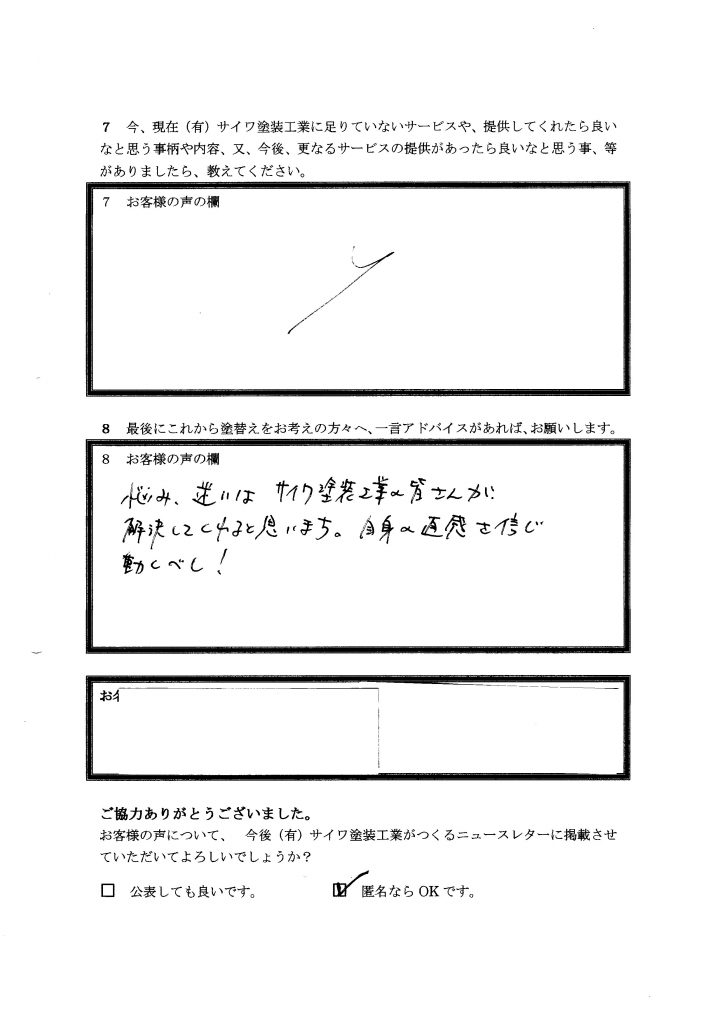 7 今、現在（有）サイワ塗装工業に足りていないサービスや、提供してくれたら良い
なと思う事柄や内容、又、今後、更なるサービスの提供があったら良いなと思う事、等
がありましたら、教えてください。
7 お客様の声の欄
8 最後にこれから塗替えをお考えの方々へ、一言アドバイスがあれば、お願いします。
8 お客様の声の欄
悩み、迷いは サイワ塗装工業の皆さんが
解決してくれると思います。自身の直感を信じ
動くべし！
お
ご協力ありがとうございました。
お客様の声について、 今後（有）サイワ塗装工業がつくるニュースレターに掲載させ
ていただいてよろしいでしょうか？
□ 公表しても良いです。 ☑ 匿名なら OK です。